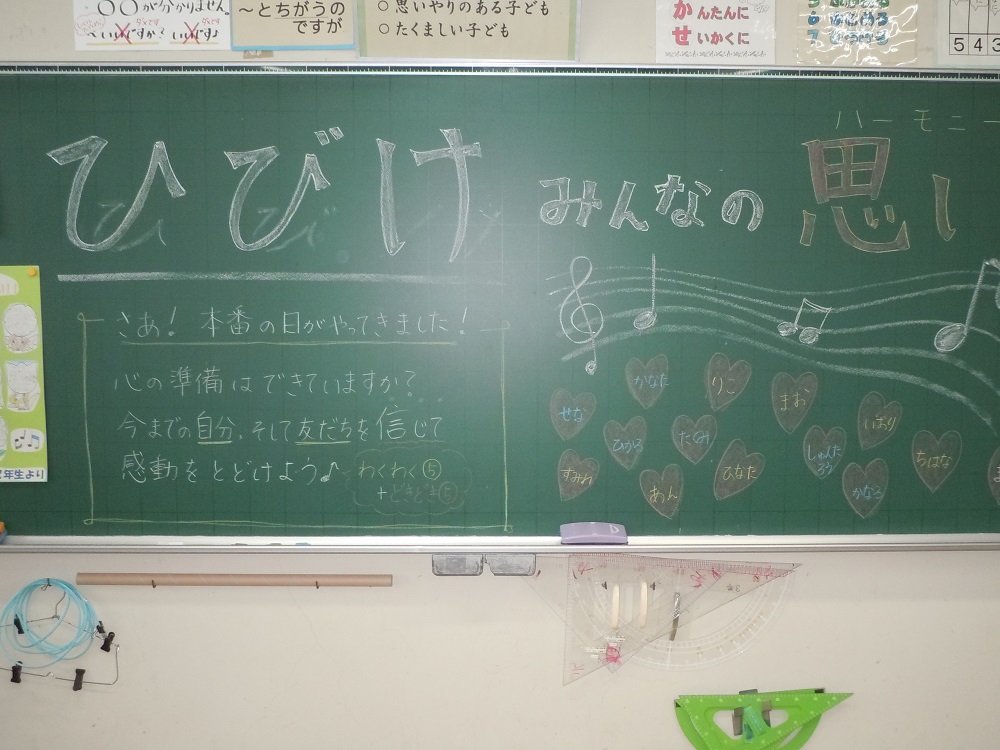 〇〇が分かりません。
～いいですか？ いいです♪
～とちがうの
ですが
○思いやりのある子ども
○たくましい子ども
かんたんに
せいかくに
5 4 3
ハーモニー
ひびけ みんなの 思い
さあ！ 本番の日がやってきました！
心の準備はできていますか？
今までの自分、そして友だちを信じて
感動をとどけよう♪ わくわく⑤
+どきどき⑤
かなた りこ まお いおり
せな ひかる たくみ しゅんたろう ちはな
すみれ あん ひなた かなう
年生より